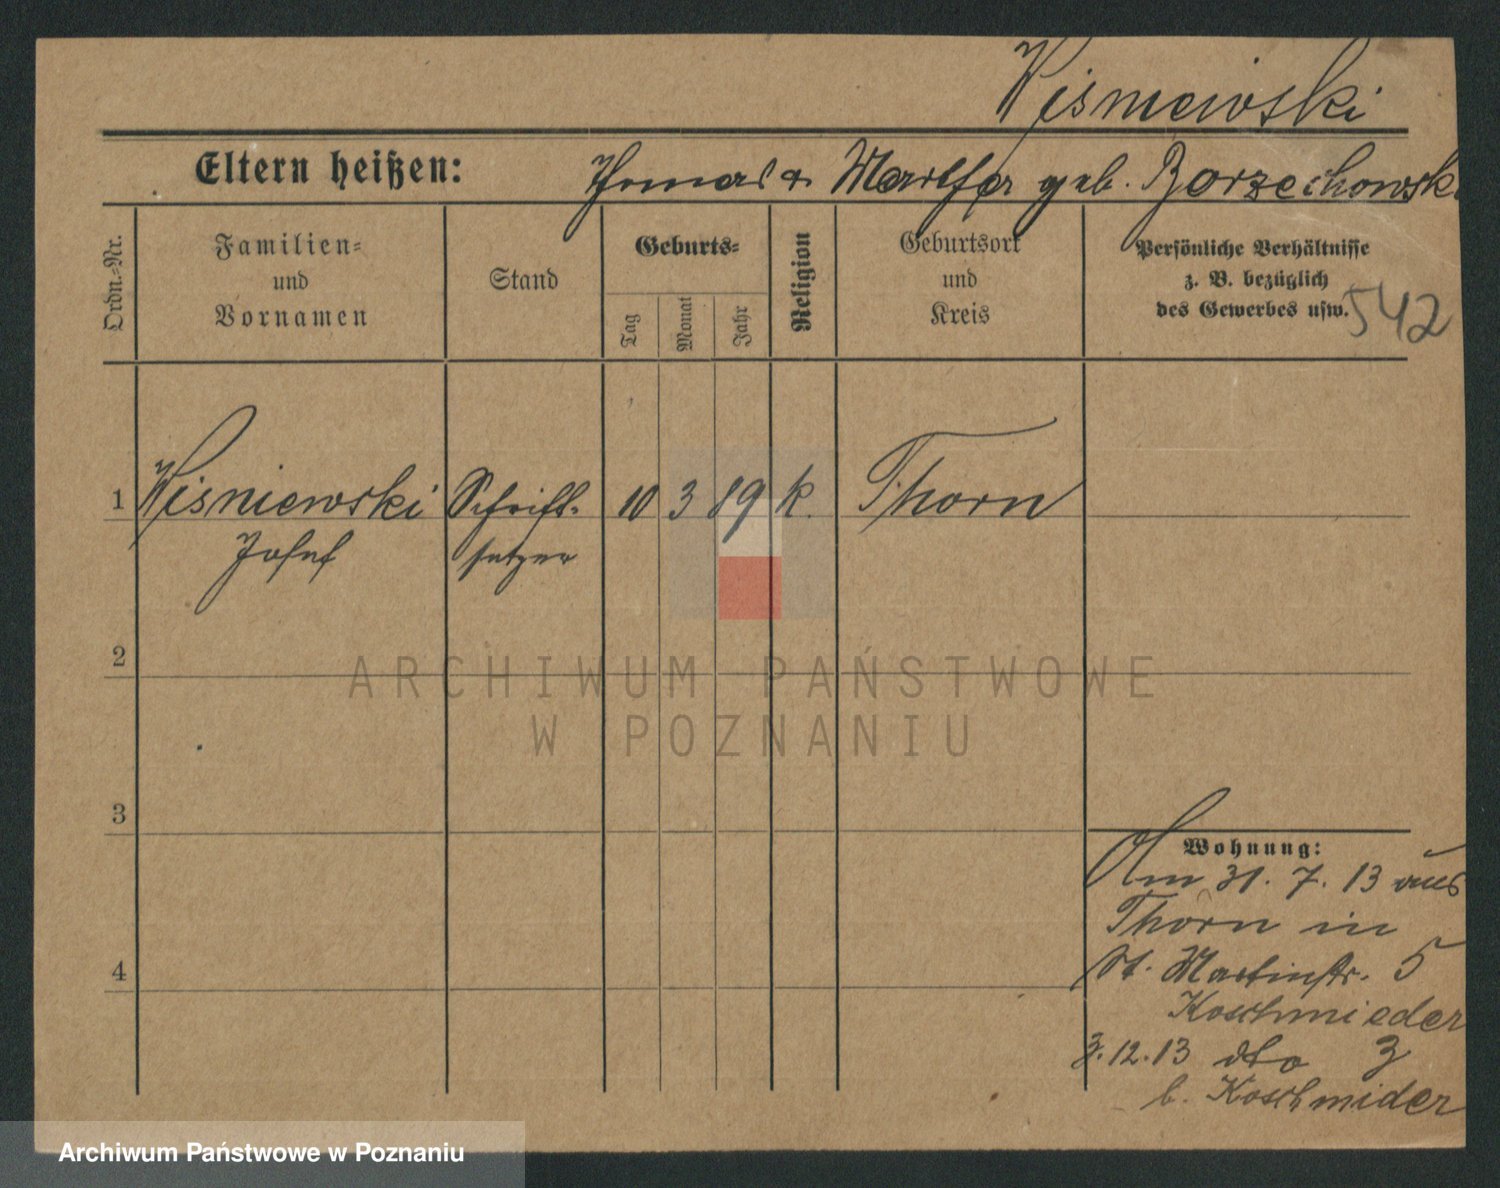 Wisniewski
Eltern heißen: Thomas & Martha geb. Borzechowski
Ordn.-Nr.
Familien-
und
Vornamen
Stand
Geburts-
Tag
Monat
Jahr
Religion
Geburtsort
und
Kreis
Persönliche Verhältnisse
z. B. bezüglich
des Gewerbes usw.
542
1 Wisniewski Schrift- 10 3 89 k. Thorn
Josef setzer
2
ARCHIWUM PAŃSTWOWE
W POZNANIU
3
Wohnung:
Am 31. 7. 13 aus
Thorn in
4
St. Martinstr. 5
Koschmieder
3.12.13 dto 3
b. Koschmider
Archiwum Państwowe w Poznaniu